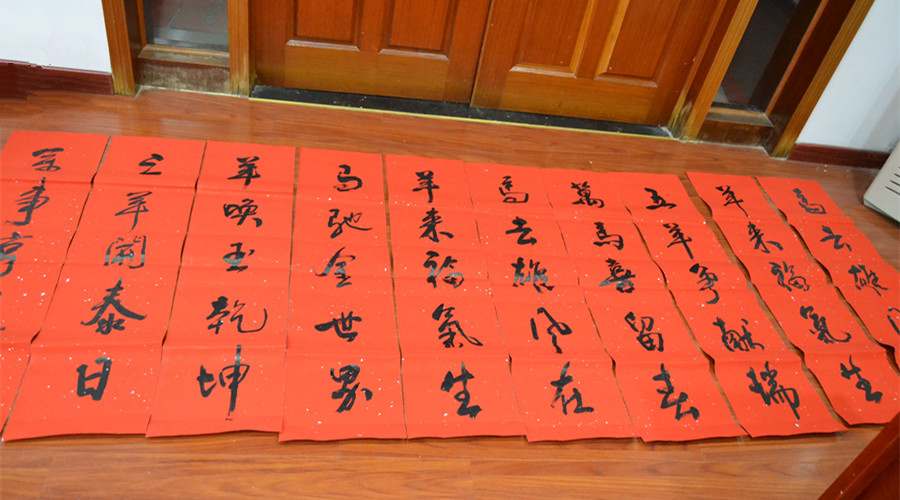 馬去雄
羊来福氣生
五羊争献瑞
萬馬喜留春
馬去雄风在
羊来福氣生
馬馳金世界
羊喚玉乾坤
三羊開泰日
萬事亨